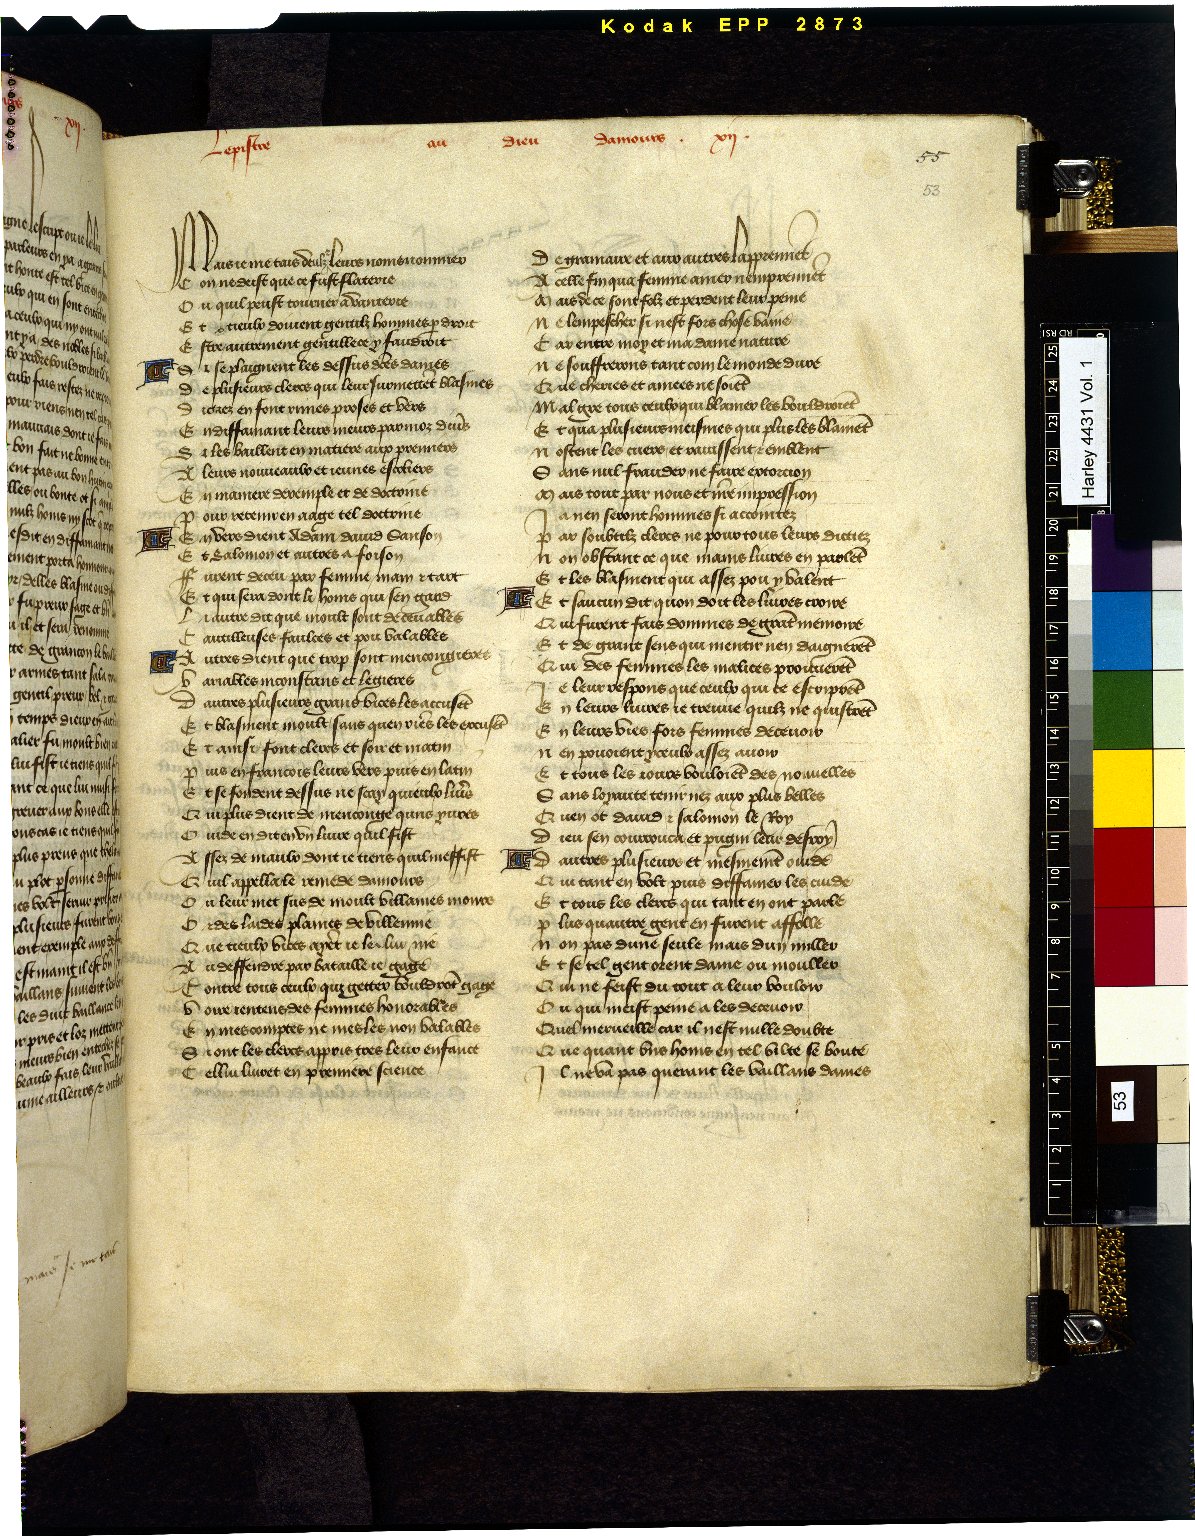 Kodak EPP 2873
Lepistre au dieu damours . xij .
55
53
Mais ie me tais deulx leurs noms nommer
C on ne deist que ce fust flaterie
O u quil peust tourner a vanterie
E t tieulx doivent gentilz hommes p droit
E stre autrement gentillece y faudroit
S i se plaignent les dessus dces dames
d e plusieurs clercs qui leur surmettet blasmes
d ictiez en font rimes proses et vers
E n diffamant leurs meurs par moz divers
S i les baillent en matiere aux premiers
A leurs nouveaulx et ieunes escoliers
E n maniere dexemple et de doctrine
p our retenir en aage tel doctrine
E n vers dient Adam david Sanson
E t Salomon et autres a foison
ff urent deceu par femme main et tart
E t qui sera dont li homs qui sen gard
L i autre dit que moult sont decevables
C autilleuses faulces et pou valables
A utres dient que trop sont mencongieres
V ariables inconstans et legieres
D autres plusieurs grans vices les accuset
E t blasment moult sans que riens les excuset
E t ainsi font clercs et soir et matin
p uis en francois leurs vers puis en latin
E t se fondent dessus ne scay quieulx livres
Q ui plus dient de menconge quns yvres
O vide en dit en un livre quil fist
A ssez de maulx dont ie tiens quil meffist
Q uil appella le remede damours
O u leur met sus de moult villaines mours
O rdes laides plaines de villennie
Q ue tieulx vices ayent ie le luy nie
A u deffendre par bataille ie gage
C ontre tous ceulx qui getter vouldrot gage
V oire i entens des femmes honorables
E n mes comptes ne mes les non valables
S i ont les clercs appris tres leur enfance
C ellui livret en premiere science
D e gramaire et aux autres lapprennet
A celle fin qua femme amer nemprennet
M ais de ce sont folz et perdent leur peine
N e lempescher si nest fors chose vaine
C ar entre moy et ma dame nature
N e souffrerons tant com le monde dure
Q ue cheries et amees ne soiet
M algre tous ceulx qui blamer les vouldroiet
E t qua plusieurs meismes qui plus les blamet
N ostent les cuers et ravissent et emblent
S ans nul frauder ne faire extorcion
M ais tout par nous et nre impression
J a nen seront hommes si accointez
p ar soubtilz clercs ne pour tous leurs dictiez
N on obstant ce que mains livres en parlet
E t les blasment qui assez pou y valent
E t saucun dit quon doit les livres croire
Q ui furent fais dommes de grat memoire
E t de grant sens qui mentir nen daigneret
Q ui des femmes les malices prouveret
J e leur respons que ceulx qui ce escriprent
E n leurs livres ie treuve quilz ne quistrent
E n leurs vies fors femmes decevoir
N en povoient yceulx assez avoir
E t tous les iours vouloiet des nouvelles
S ans loyaute tenir nez aux plus belles
Q uen ot david et salomon le Roy
D ieu sen courrouca et pugni leur desroy
D autres plusieurs et mesmemet ovide
Q ui tant en volt puis diffamer les cuide
E t tous les clercs qui tant en ont parle
p lus quautre gent en furent affolle
N on pas dune seule mais dun millier
E t se tel gent orent dame ou moullier
Q ui ne feist du tout a leur vouloir
O u qui meist peine a les decevoir
Quel merveille car il nest nulle doubte
Q ue quant uns homs en tel vilte se boute
J l ne va pas querant les vaillans dames
mais Je me tais
Harley 4431 Vol. 1
53